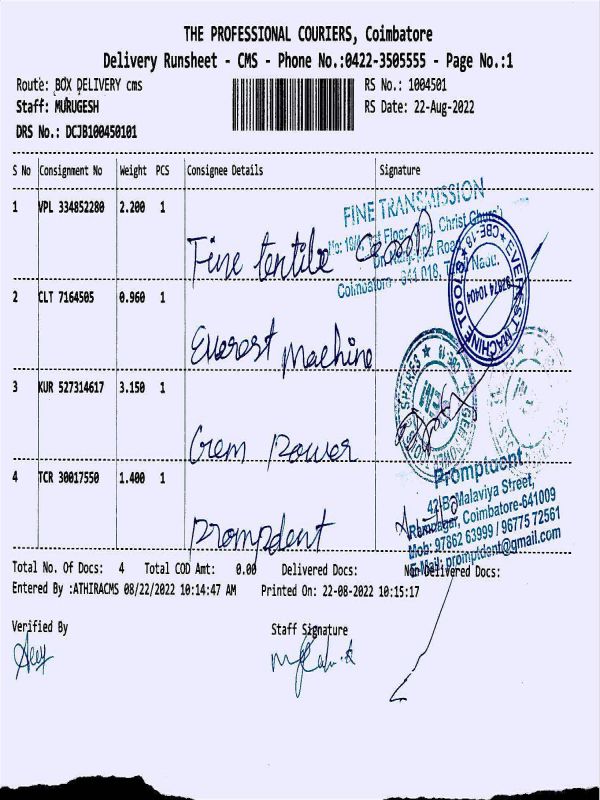 THE PROFESSIONAL COURIERS, Coimbatore
Delivery Runsheet - CMS - Phone No.:0422-3505555 - Page No.:1
Route: BOX DELIVERY cms
RS No.: 1004501
Staff: MURUGESH
RS Date: 22-Aug-2022
DRS No.: DCJB100450101
S No Consignment No Weight PCS Consignee Details Signature
1 VPL 334852280 2.200 1 Fine
FINE TRANSMISSION
Christ Church
Coimbatore - 641 018,
2 CLT 7164505 0.960 1 Everest Machine
EVEREST MACHINE TOOLS
CBE-18
3 KUR 527314617 3.150 1 Gem Power
4 TCR 30017550 1.400 1 Prompdent
Promptdent
42-B, Malaviya Street,
Ramnagar, Coimbatore-641009
Mob: 97862 63999 / 96775 72561
E-Mail: promptdent@gmail.com
Total No. Of Docs: 4 Total COD Amt: 0.00 Delivered Docs: Non Delivered Docs:
Entered By :ATHIRACMS 08/22/2022 10:14:47 AM Printed On: 22-08-2022 10:15:17
Verified By
Staff Signature